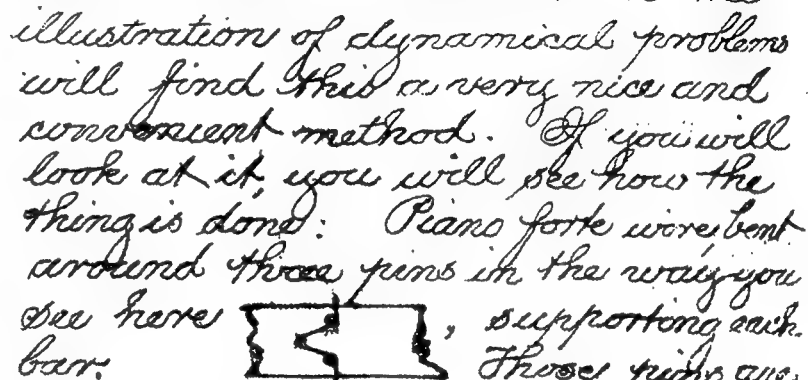 illustration of dynamical problems
will find this a very nice and
convenient method. If you will
look at it, you will see how the
thing is done: Piano forte wire, bent
around three pins in the way you
see here , supporting each
bar. Those pins are